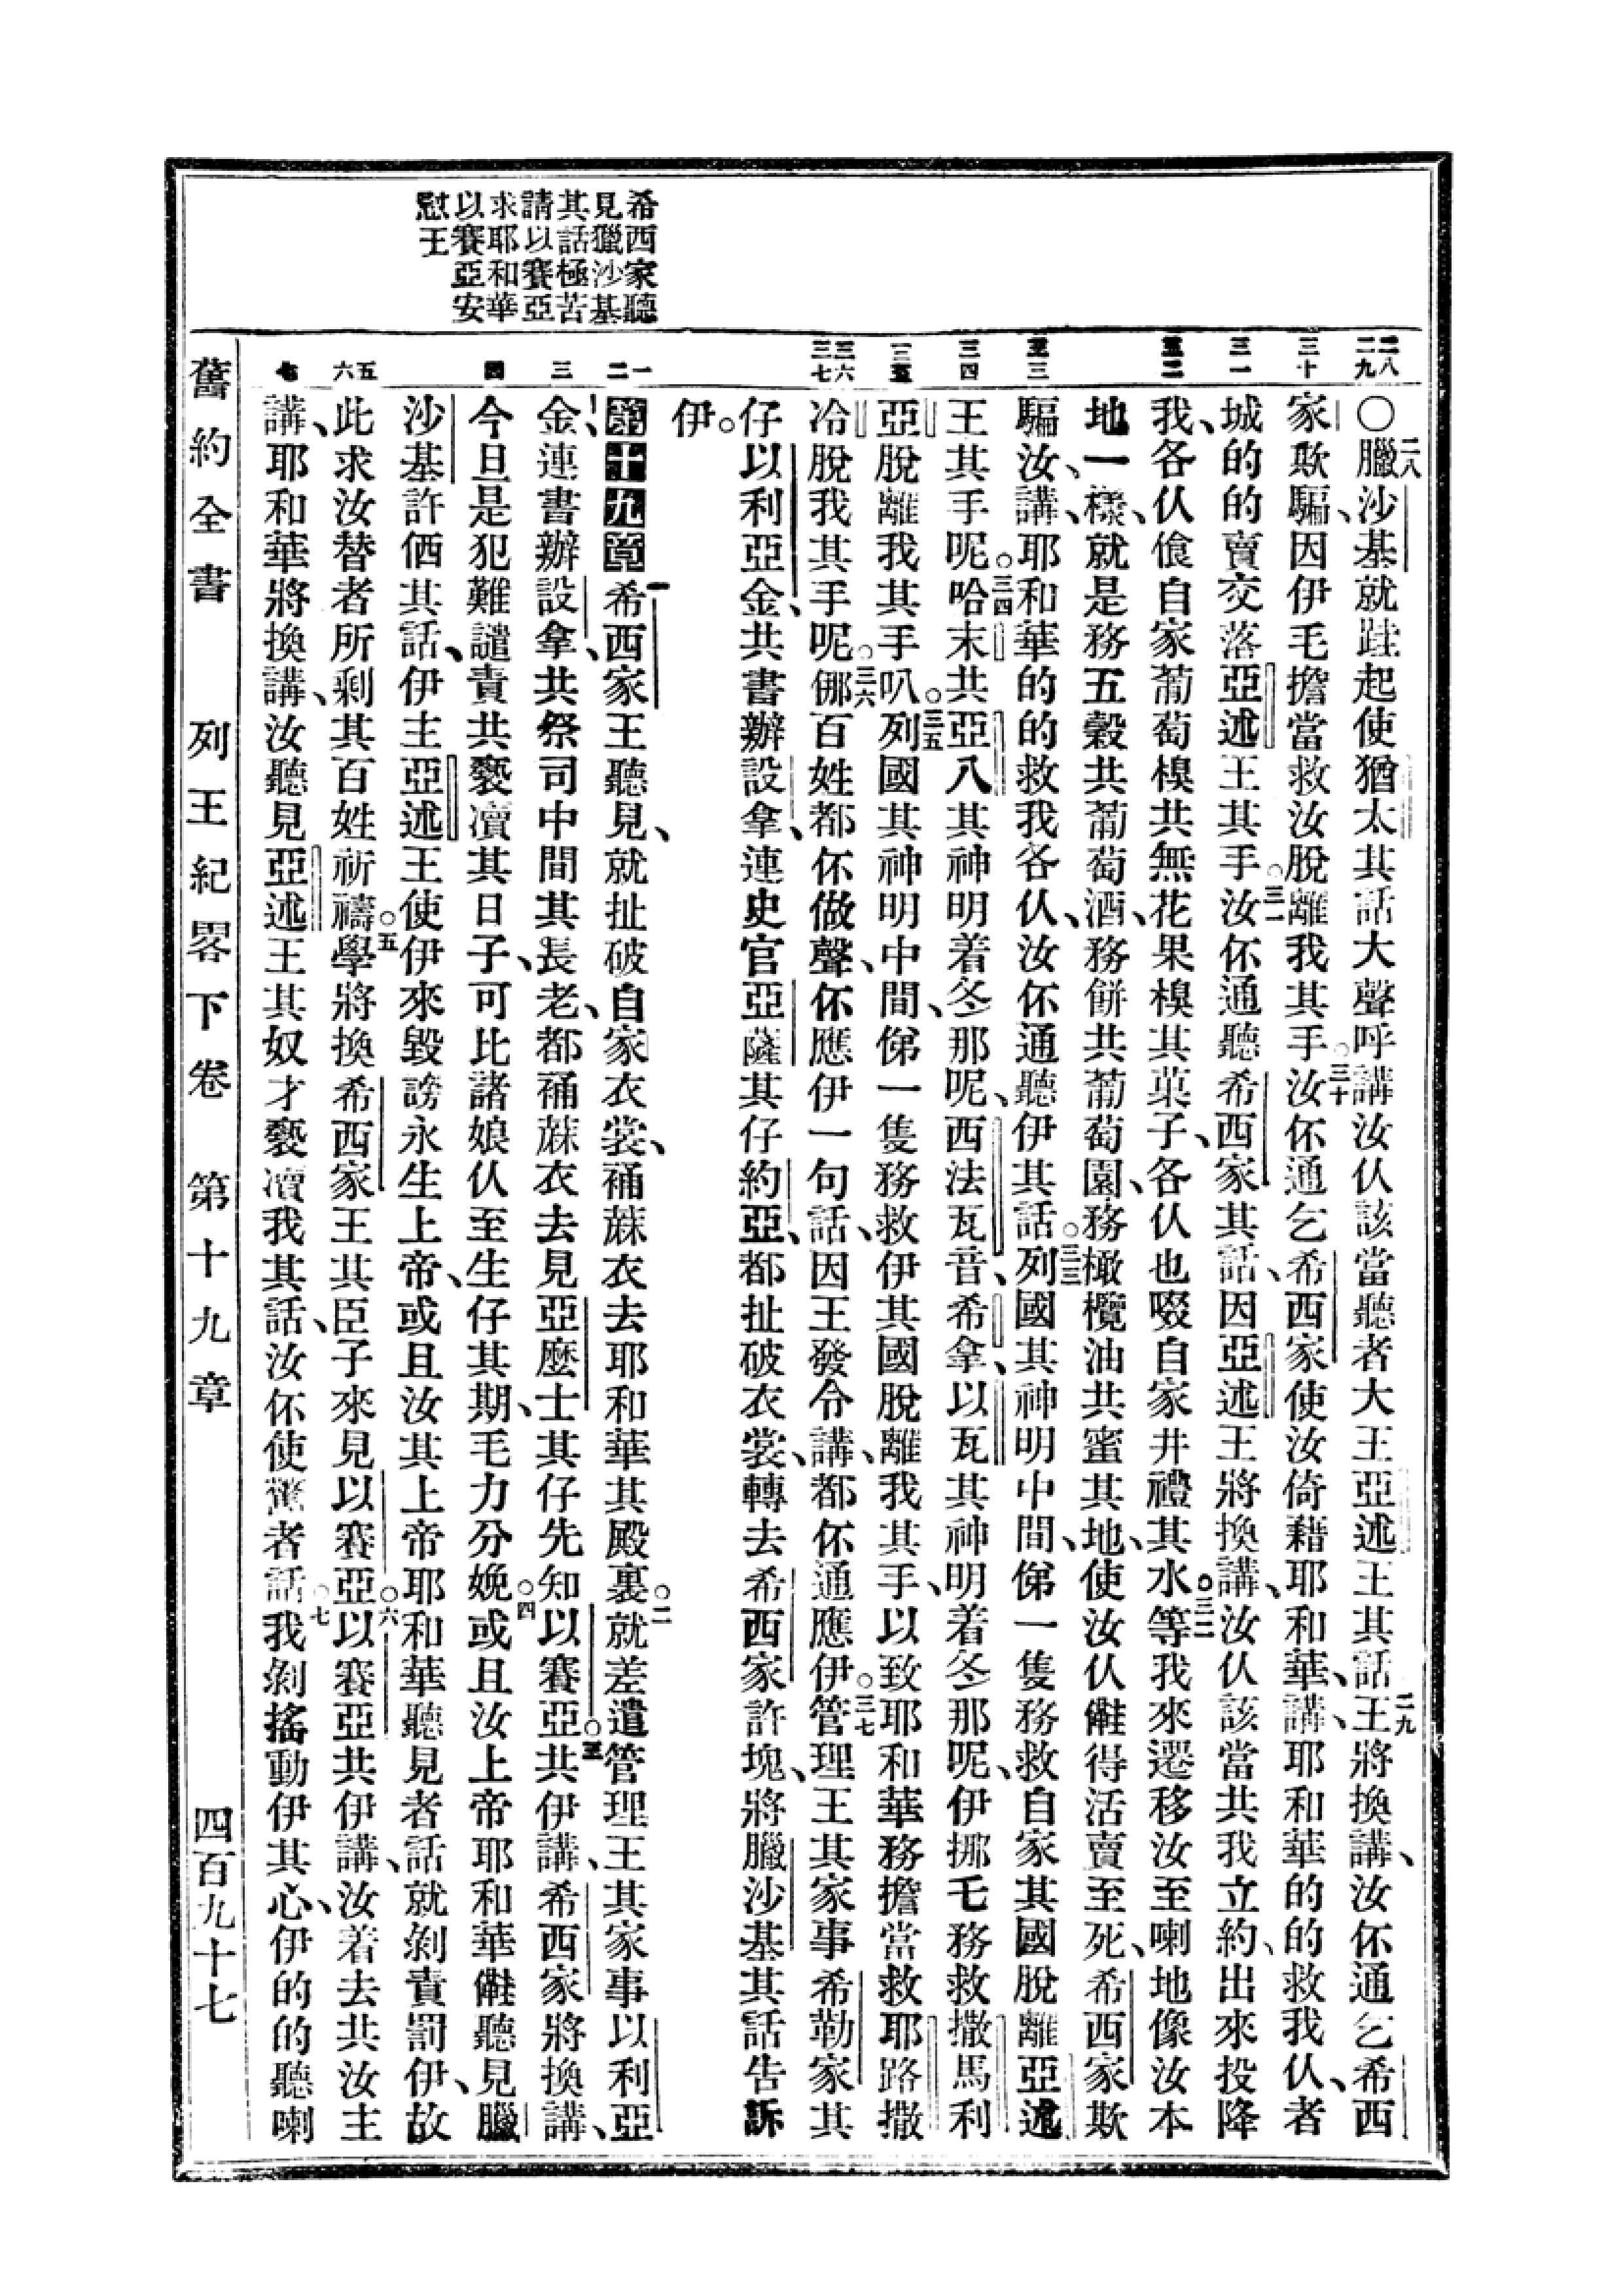 希西家聽
見獵沙基
其話極苦
請以賽亞
求耶和華
以賽亞安
慰王
二八 二九 三十 三一 三二 三三 三四 三五 三六 三七 一 二 三 四 五 六 七
〇二八臘沙基就跬起使猶太其話大聲呼講汝仈該當聽者大王亞述王其話二九王將換講、汝伓通乞希西
家欺騙、因伊毛擔當救汝脫離我其手。三十汝伓通乞希西家使汝倚藉耶和華、講、耶和華的的救我仈、者
城的的賣交落亞述王其手。三一汝伓通聽希西家其話、因亞述王將換講、汝仈該當共我立約、出來投降
我、各仈飡自家葡萄模共無花果模其菓子、各仈也啜自家井禮其水。三二等我來遷移汝至喇地像汝本
地一樣、就是務五穀共葡萄酒、務餅共葡萄園、務橄欖油共蜜其地、使汝仈㒕得活賣至死、希西家欺
騙汝、講、耶和華的的救我各仈、汝伓通聽伊其話。三三列國其神明中間、俤一隻務救自家其國脫離亞述
王其手呢。三四哈末共亞八其神明着冬那呢、西法瓦音、希拿、以瓦其神明着冬那呢、伊挪乇務救撒馬利
亞脫離我其手叭。三五列國其神明中間、俤一隻務救伊其國脫離我其手、以致耶和華務擔當救耶路撒
冷脫我其手呢。三六㑚百姓都伓做聲、伓應伊一句話、因王發令講、都伓通應伊。三七管理王其家事希勒家其
仔以利亞金、共書辦設拿、連史官亞薩其仔約亞、都扯破衣裳、轉去希西家許塊、將臘沙基其話告訴
伊。
第十九章 一希西家王聽見、就扯破自家衣裳、裲蔴衣去耶和華其殿裏。二就差遣管理王其家事以利亞
金、連書辦設拿、共祭司中間其長老、都裲蔴衣去見亞麼士其仔先知以賽亞。三共伊講、希西家將換講、
今旦是犯難譴責共褻瀆其日子、可比諸娘仈至生仔其期、毛力分娩。四或且汝上帝耶和華㒕聽見臘
沙基許価其話、伊主亞述王使伊來毀謗永生上帝、或且汝其上帝耶和華聽見者話、就剝責罰伊、故
此求汝替者所剩其百姓祈禱。五學將換希西家王其臣子來見以賽亞。六以賽亞共伊講、汝着去共汝主
講、耶和華將換講、汝聽見亞述王其奴才褻瀆我其話、汝伓使驚者話。七我剝搖動伊其心、伊的的聽喇
舊約全書 列王紀畧下卷 第十九章 四百九十七